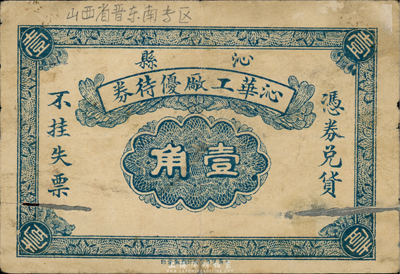 山西省晋东南专区
縣沁
券待優廠工華沁
憑券兌貨
角壹
不挂失票